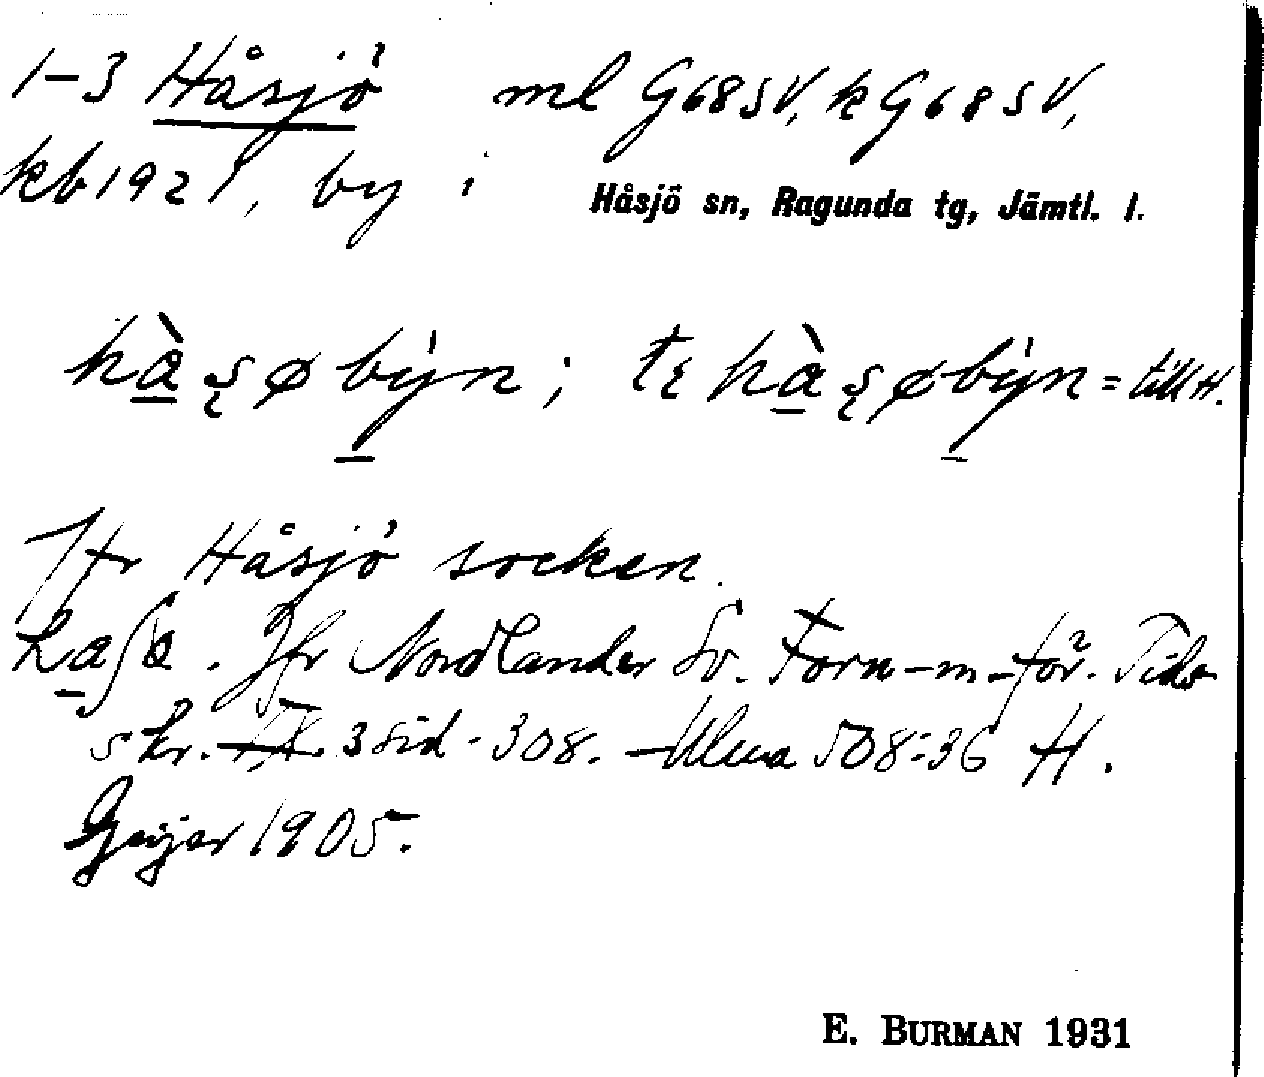 1-3 Håsjö ml G68SV, k G68SV,
kb 1921, by i Håsjö sn, Ragunda tg, Jämtl. l.
hàşøby̍n; tɛ hàşøby̍n = till H.
Jfr Håsjö socken.
Jfr Nordlander Sv. Forn-m-för. Tids
skr. IX. 3 sid. 308. Ulma 508:36 H.
Geijer 1905.
E. BURMAN 1931